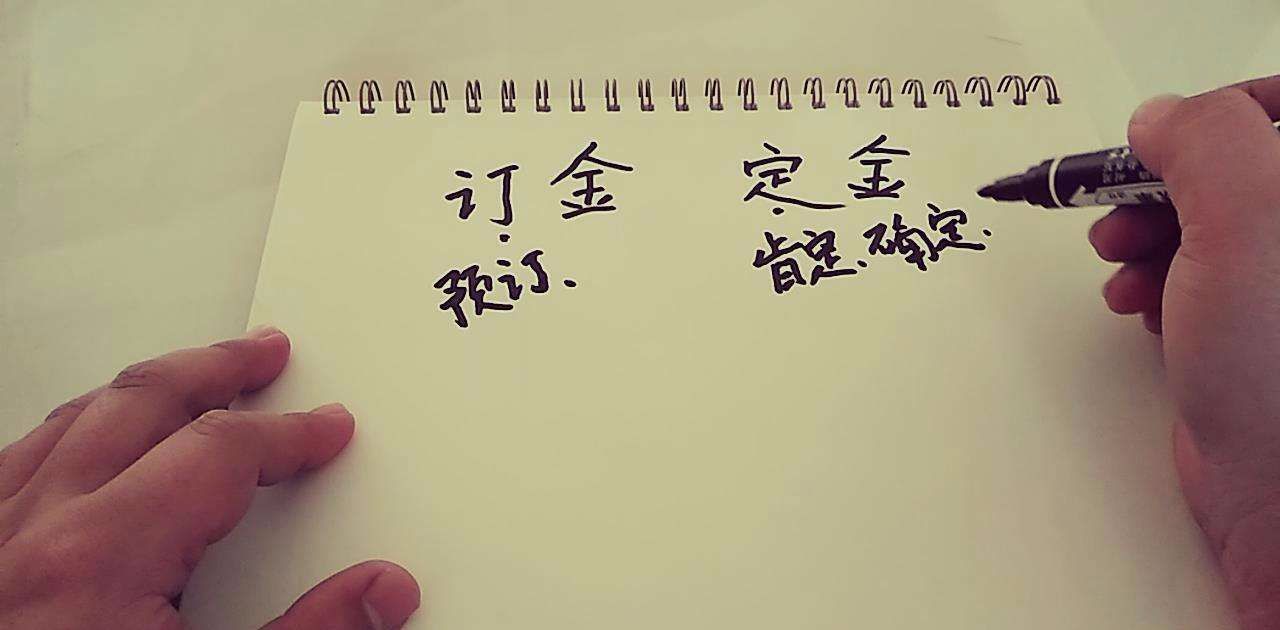 订金 定金
预订、 肯定、确定.